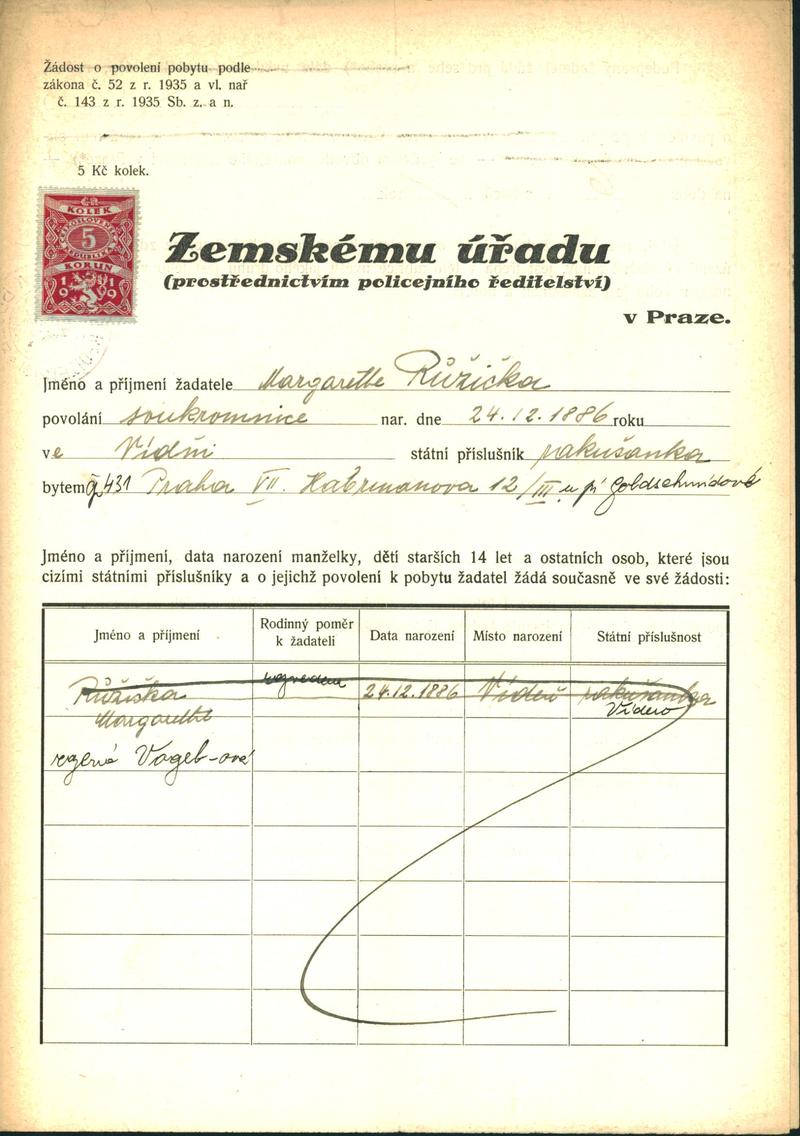 Žádost o povolení pobytu podle
zákona č. 52 z r. 1935 a vl. nař
č. 143 z r. 1935 Sb. z. a n.
5 Kč kolek.
KOLEK
5
KORUN
1919
Zemskému úřadu
(prostřednictvím policejního ředitelství)
v Praze.
Jméno a příjmení žadatele Margarethe Růžička
povolání soukromnice nar. dne 24.12.1886 roku
ve Vídni státní příslušník rakušanka
bytem 431 Praha VII. Habrmanova 12/III u pí Goldschmidové
Jméno a příjmení, data narození manželky, dětí starších 14 let a ostatních osob, které jsou
cizími státními příslušníky a o jejichž povolení k pobytu žadatel žádá současně ve své žádosti:
Jméno a příjmení
Rodinný poměr
k žadateli
Data narození
Místo narození
Státní příslušnost
Růžička rozvedena 24.12.1886 Vídeň rakušanka
Margarethe Vídeň